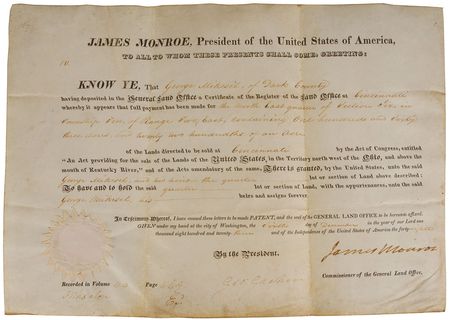 JAMES MONROE, President of the United States of America,
TO ALL TO WHOM THESE PRESENTS SHALL COME, GREETING:
KNOW YE, That George of Dark County
having deposited in the General Land Office a Certificate of the Register of the Land Office at Cincinnati
whereby it appears that full payment has been made for the North East quarter of Section
Township of Range East, containing One hundred and forty
three acres and twenty two hundredths of an acre
of the Lands directed to be sold at Cincinnati by the Act of Congress, entitled
"An Act providing for the sale of the Lands of the United States, in the Territory north west of the Ohio, and above the
mouth of Kentucky River," and of the Acts amendatory of the same. There is granted, by the United States, unto the said
George and his heirs the quarter lot or section of Land above described:
To have and to hold the said quarter lot or section of Land, with the appurtenances, unto the said
George his heirs and assigns forever.
In Testimony Whereof, I have caused these letters to be made PATENT, and the seal of the GENERAL LAND OFFICE to be hereunto affixed.
GIVEN under my hand at the city of Washington, the day of in the year of our Lord one
thousand eight hundred and twenty and of the Independence of the United States of America the forty
By the President. James Monroe
Commissioner of the General Land Office.
Recorded in Volume Page